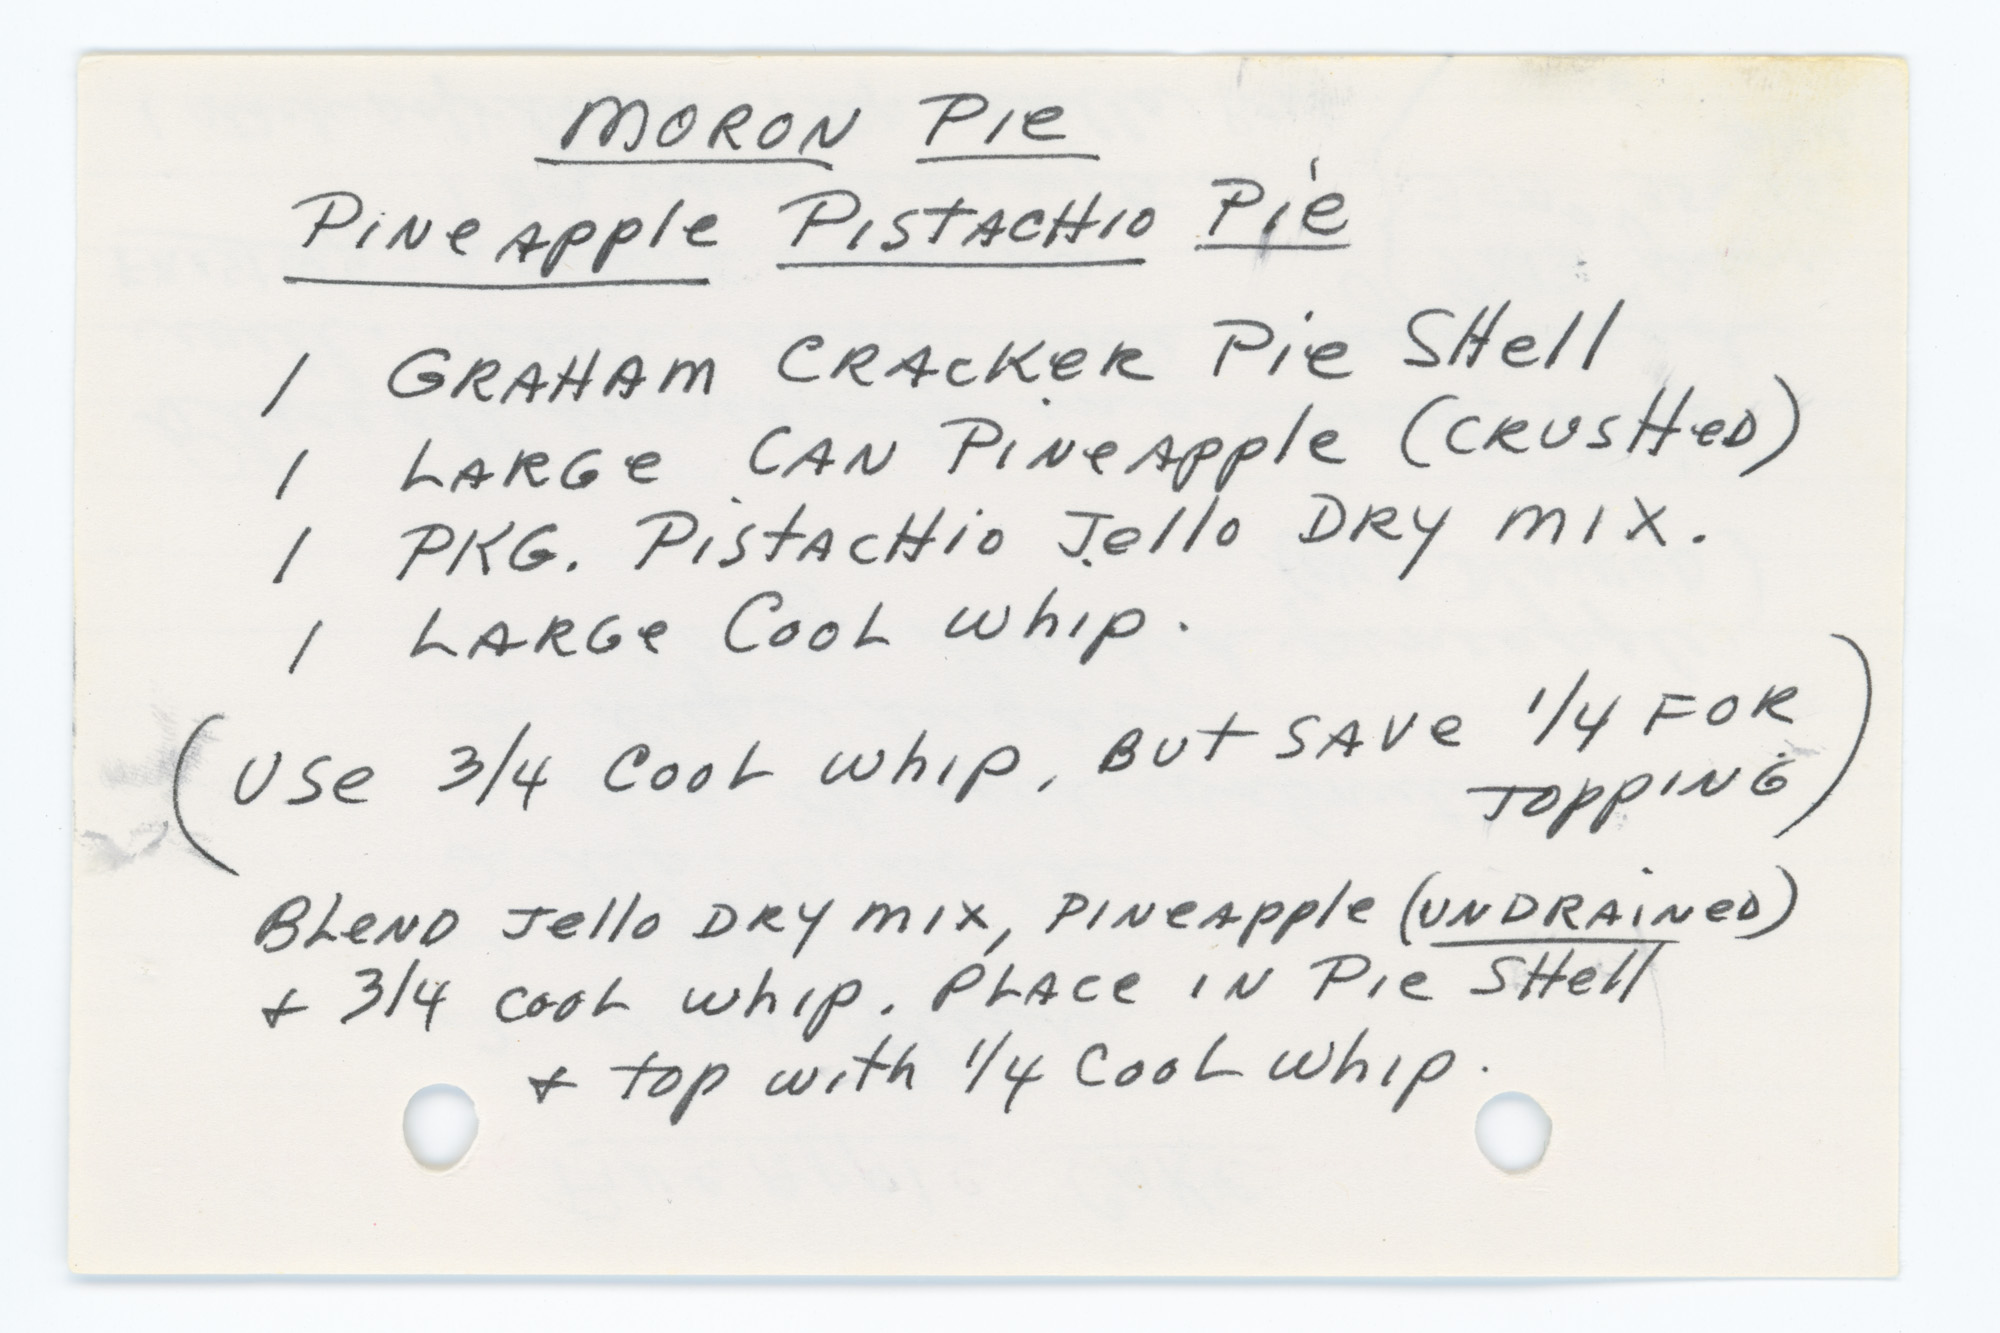 MORON Pie
PiNeApple PistACHio Pie
1 GRAHAM CRAcKeR Pie SHell
1 LARGe CAN PiNeApple (CRUSHeD)
1 PKG. PistACHio Jello DRY mix.
1 LARGe CooL whip.
(Use 3/4 CooL whip, But SAVe 1/4 FOR
TOPPING)
BLeND Jello DRY mix, PiNeApple (UNDRAiNeD)
+ 3/4 CooL whip. PLACe iN Pie SHell
+ top with 1/4 CooL whip.